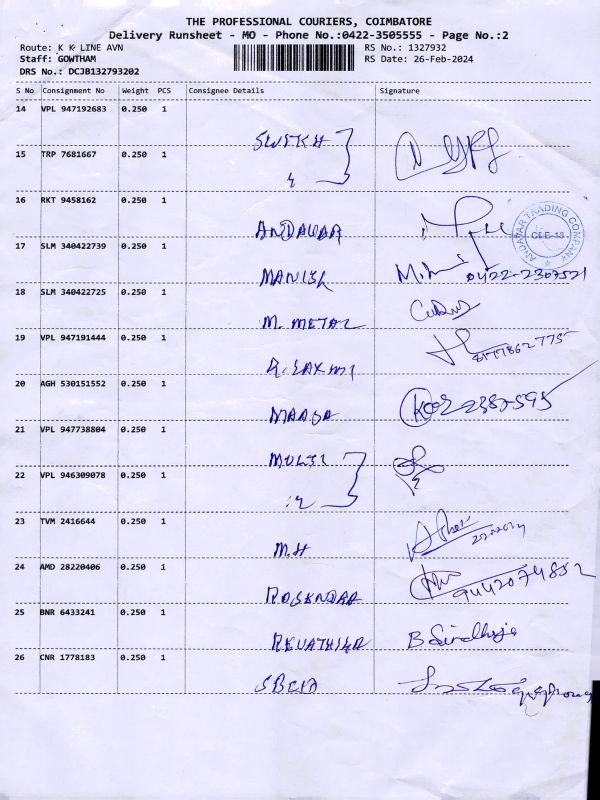 THE PROFESSIONAL COURIERS, COIMBATORE
Delivery Runsheet - MO - Phone No.:0422-3505555 - Page No.:2
Route: K K LINE AVN
RS No.: 1327932
Staff: GOWTHAM
RS Date: 26-Feb-2024
DRS No.: DCJB132793202
S No Consignment No Weight PCS Consignee Details Signature
14 VPL 947192683 0.250 1
15 TRP 7681667 0.250 1
16 RKT 9458162 0.250 1
ANDAVAR
ANDAVAR TRADING COMPANY
CBE-18
17 SLM 340422739 0.250 1
MANISH 0422-2307521
18 SLM 340422725 0.250 1
M. METAL
19 VPL 947191444 0.250 1
R. LAXMI 8177862775
20 AGH 530151552 0.250 1
21 VPL 947738804 0.250 1
MULTI
22 VPL 946309078 0.250 1
23 TVM 2416644 0.250 1
M.H
24 AMD 28220406 0.250 1
9442074882
25 BNR 6433241 0.250 1
B Sindhuja
26 CNR 1778183 0.250 1